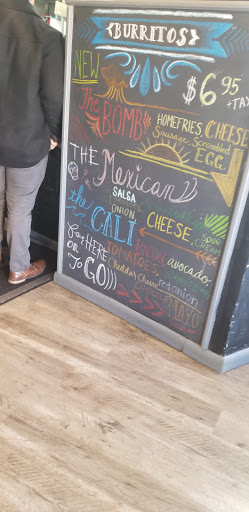 BURRITOS
NEW
$6.95
+TAX
The BOMB
HOMEFRIES, CHEESE
Sausage, Scrambled
EGG.
THE Mexican
SALSA
ONION
CHEESE,
the CALI
BACON,
avocado,
TOMATOES,
Cheddar Cheese
red onion
MAYO
For HERE
OR
To GO